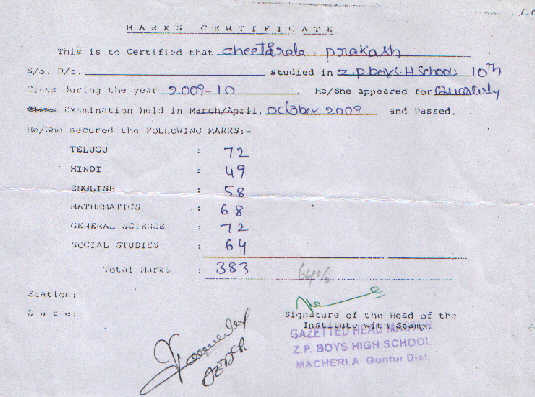 MARKS CERTIFICATE
This is to Certified that cheetarala prakash
S/o. D/o. studied in Z.P. boys.H School 10th
Class during the year 2009-10 He/She appeared for Quarterly
Class Examination held in March/April, October 2009 and Passed.
He/She secured the FOLLOWING MARKS:-
TELUGU : 72
HINDI : 49
ENGLISH : 58
MATHEMATICS : 68
GENERAL SCIENCE : 72
SOCIAL STUDIES : 64
Total Marks : 383
Station:
Date:
Signature of the Head of the
Institute with Stamp.
GAZETTED HEAD MASTER
Z.P. BOYS HIGH SCHOOL
MACHERLA Guntur Dist.